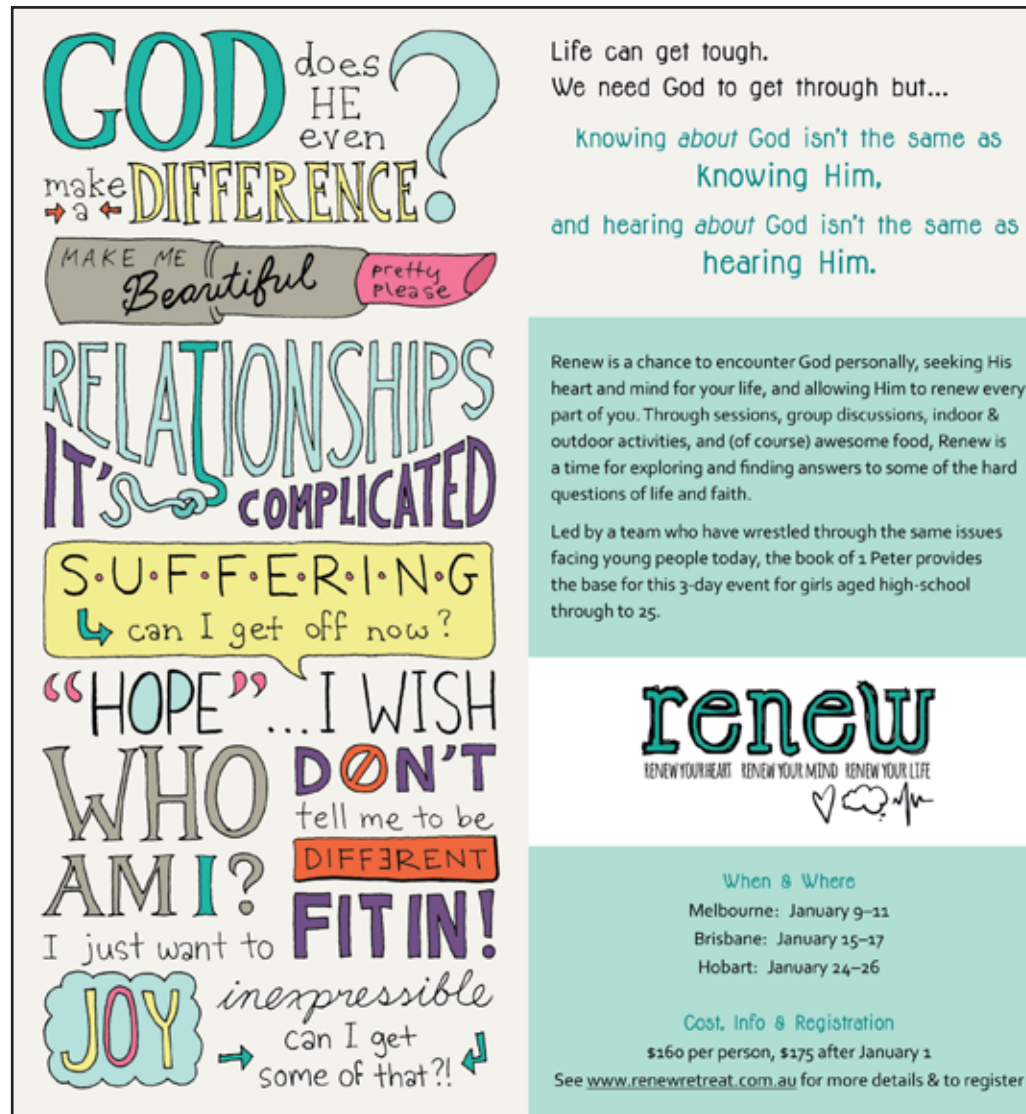 GOD does
HE
even
make a DIFFERENCE?
MAKE ME Beautiful pretty please
RELATIONSHIPS
IT'S COMPLICATED
S·U·F·F·E·R·I·N·G
can I get off now?
“HOPE”...I WISH
WHO
AM I?
I just want to
DON'T
tell me to be
DIFFERENT
FIT IN!
JOY inexpressible
can I get
some of that?!
Life can get tough.
We need God to get through but...
knowing about God isn't the same as
knowing Him,
and hearing about God isn't the same as
hearing Him.
Renew is a chance to encounter God personally, seeking His
heart and mind for your life, and allowing Him to renew every
part of you. Through sessions, group discussions, indoor &
outdoor activities, and (of course) awesome food, Renew is
a time for exploring and finding answers to some of the hard
questions of life and faith.
Led by a team who have wrestled through the same issues
facing young people today, the book of 1 Peter provides
the base for this 3-day event for girls aged high-school
through to 25.
renew
RENEW YOUR HEART RENEW YOUR MIND RENEW YOUR LIFE
When & Where
Melbourne: January 9–11
Brisbane: January 15–17
Hobart: January 24–26
Cost, Info & Registration
$160 per person, $175 after January 1
See www.renewretreat.com.au for more details & to register